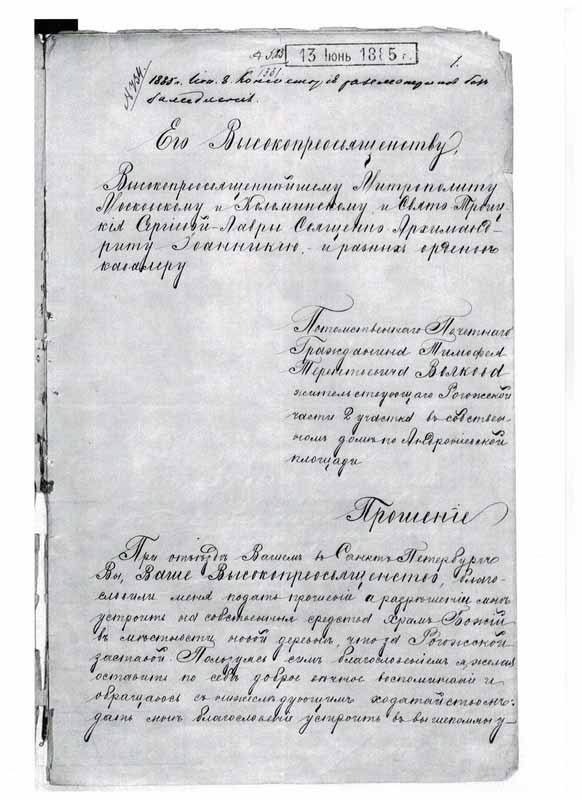 13 Іюнь 1885 г.
1.
№ 734
1885 г. Іюн. 8.
Его Высокопреосвященству,
Высокопреосвященнѣйшему Митрополиту
Московскому и Коломинскому, и Свято-Троиц-
кія Сергіевой-Лавры Священно-Архиманд-
риту Іоанникію, и разныхъ орденовъ
кавалеру
Потомственнаго Почетнаго
Гражданина Тимофея
Терентіевича Волкова
жительствующаго Рогожской
части 2 участка въ собствен-
номъ домѣ по Андроніевской
площади
Прошеніе
При отъѣздѣ Вашемъ въ Санктъ Петербургъ
Вы, Ваше Высокопреосвященство, благо-
словили меня подать прошеніе о разрѣшеніи мнѣ
устроить на собственныя средства храмъ Божій
въ мѣстности новой деревни, что за Рогожской
заставой. Пользуясь симъ благословеніемъ я желая
оставить по себѣ доброе вѣчное воспоминаніе и
обращаюсь съ нижеслѣдующимъ ходатайствомъ:
дать мнѣ благословеніе устроить въ вышепомяну-